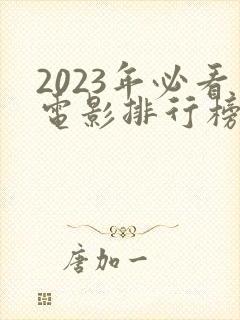 2023年必看
电影排行榜
唐加一